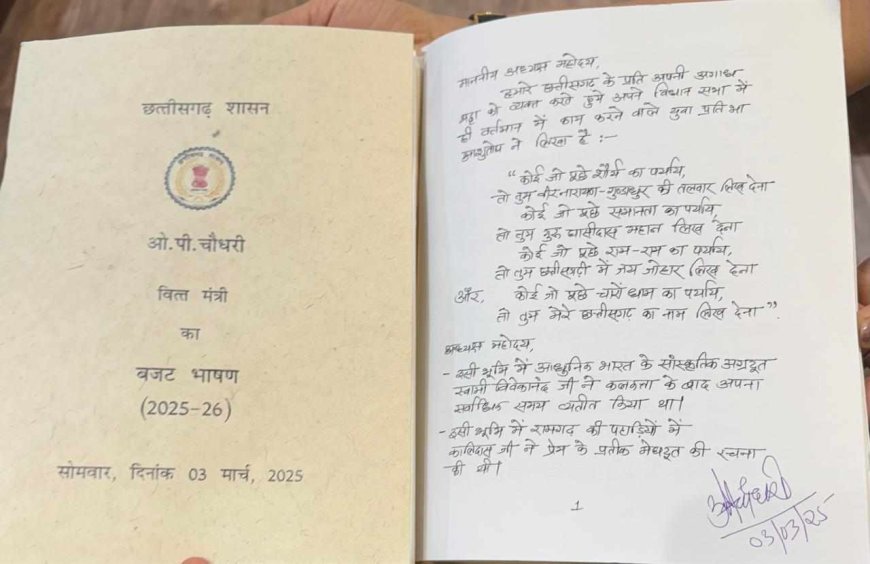 छत्तीसगढ़ शासन
ओ.पी.चौधरी
वित्त मंत्री
का
बजट भाषण
(2025-26)
सोमवार, दिनांक 03 मार्च, 2025
माननीय अध्यक्ष महोदय,
हमारे छत्तीसगढ़ के प्रति अपनी अगाध
श्रद्धा को व्यक्त करते हुये अपने विधान सभा में
ही वर्तमान में काम करने वाले युवा प्रतिभा
आशुतोष ने लिखा है :-
“ कोई जो पूछे शौर्य का पर्याय,
तो तुम वीरनारायण-गुण्डाधुर की तलवार लिख देना
कोई जो पूछे समानता का पर्याय,
तो तुम गुरु घासीदास महान लिख देना
कोई जो पूछे राम-राम का पर्याय,
तो तुम छत्तीसगढ़ी में जय जोहार लिख देना
और, कोई जो पूछे चारों धाम का पर्याय,
तो तुम मेरे छत्तीसगढ़ का नाम लिख देना ”.
अध्यक्ष महोदय,
- इसी भूमि में आधुनिक भारत के सांस्कृतिक अग्रदूत
स्वामी विवेकानंद जी ने कलकत्ता के बाद अपना
सर्वाधिक समय व्यतीत किया था।
- इसी भूमि में रामगढ़ की पहाड़ियों में
कालिदास जी ने प्रेम के प्रतीक मेघदूत की रचना
की थी।
1
03/03/25